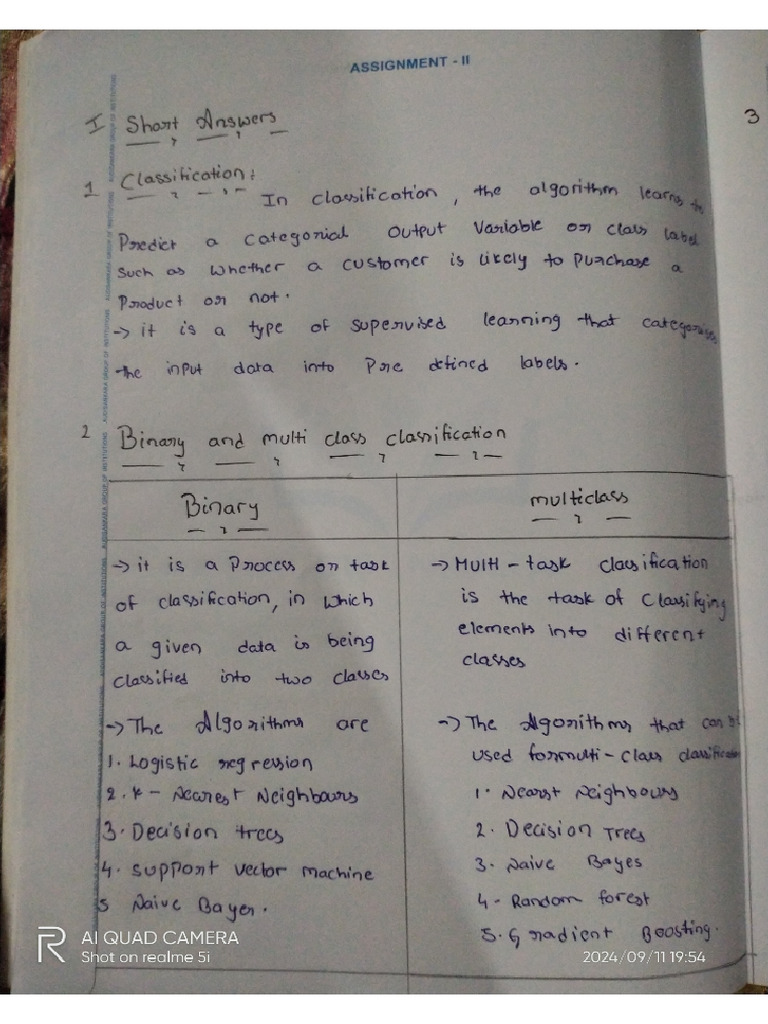 ASSIGNMENT - II
I Short Answers
3
1 Classification:
In classification, the algorithm learns to
Predict a categorial output variable or class label
such as whether a customer is likely to purchase a
Product or not.
→ it is a type of supervised learning that categorises
the input data into Pre defined labels.
2 Binary and multi class classification
Binary
→ it is a Process or task
of classification, in which
a given data is being
classified into two classes
→ The Algorithms are
1. Logistic regression
2. K - Nearest Neighbours
3. Decision trees
4. support vector machine
5 Naive Bayer.
multiclass
→ Multi - task classification
is the task of classifying
elements into different
classes
→ The Algorithms that can be
used formulti - class classification
1. Nearst Neighbours
2. Decision Trees
3. Naive Bayes
4 - Random forest
5. Gradient Boosting.
AUDISANKARA GROUP OF INSTITUTIONS
R AI QUAD CAMERA
Shot on realme 5i
2024/09/11 19:54